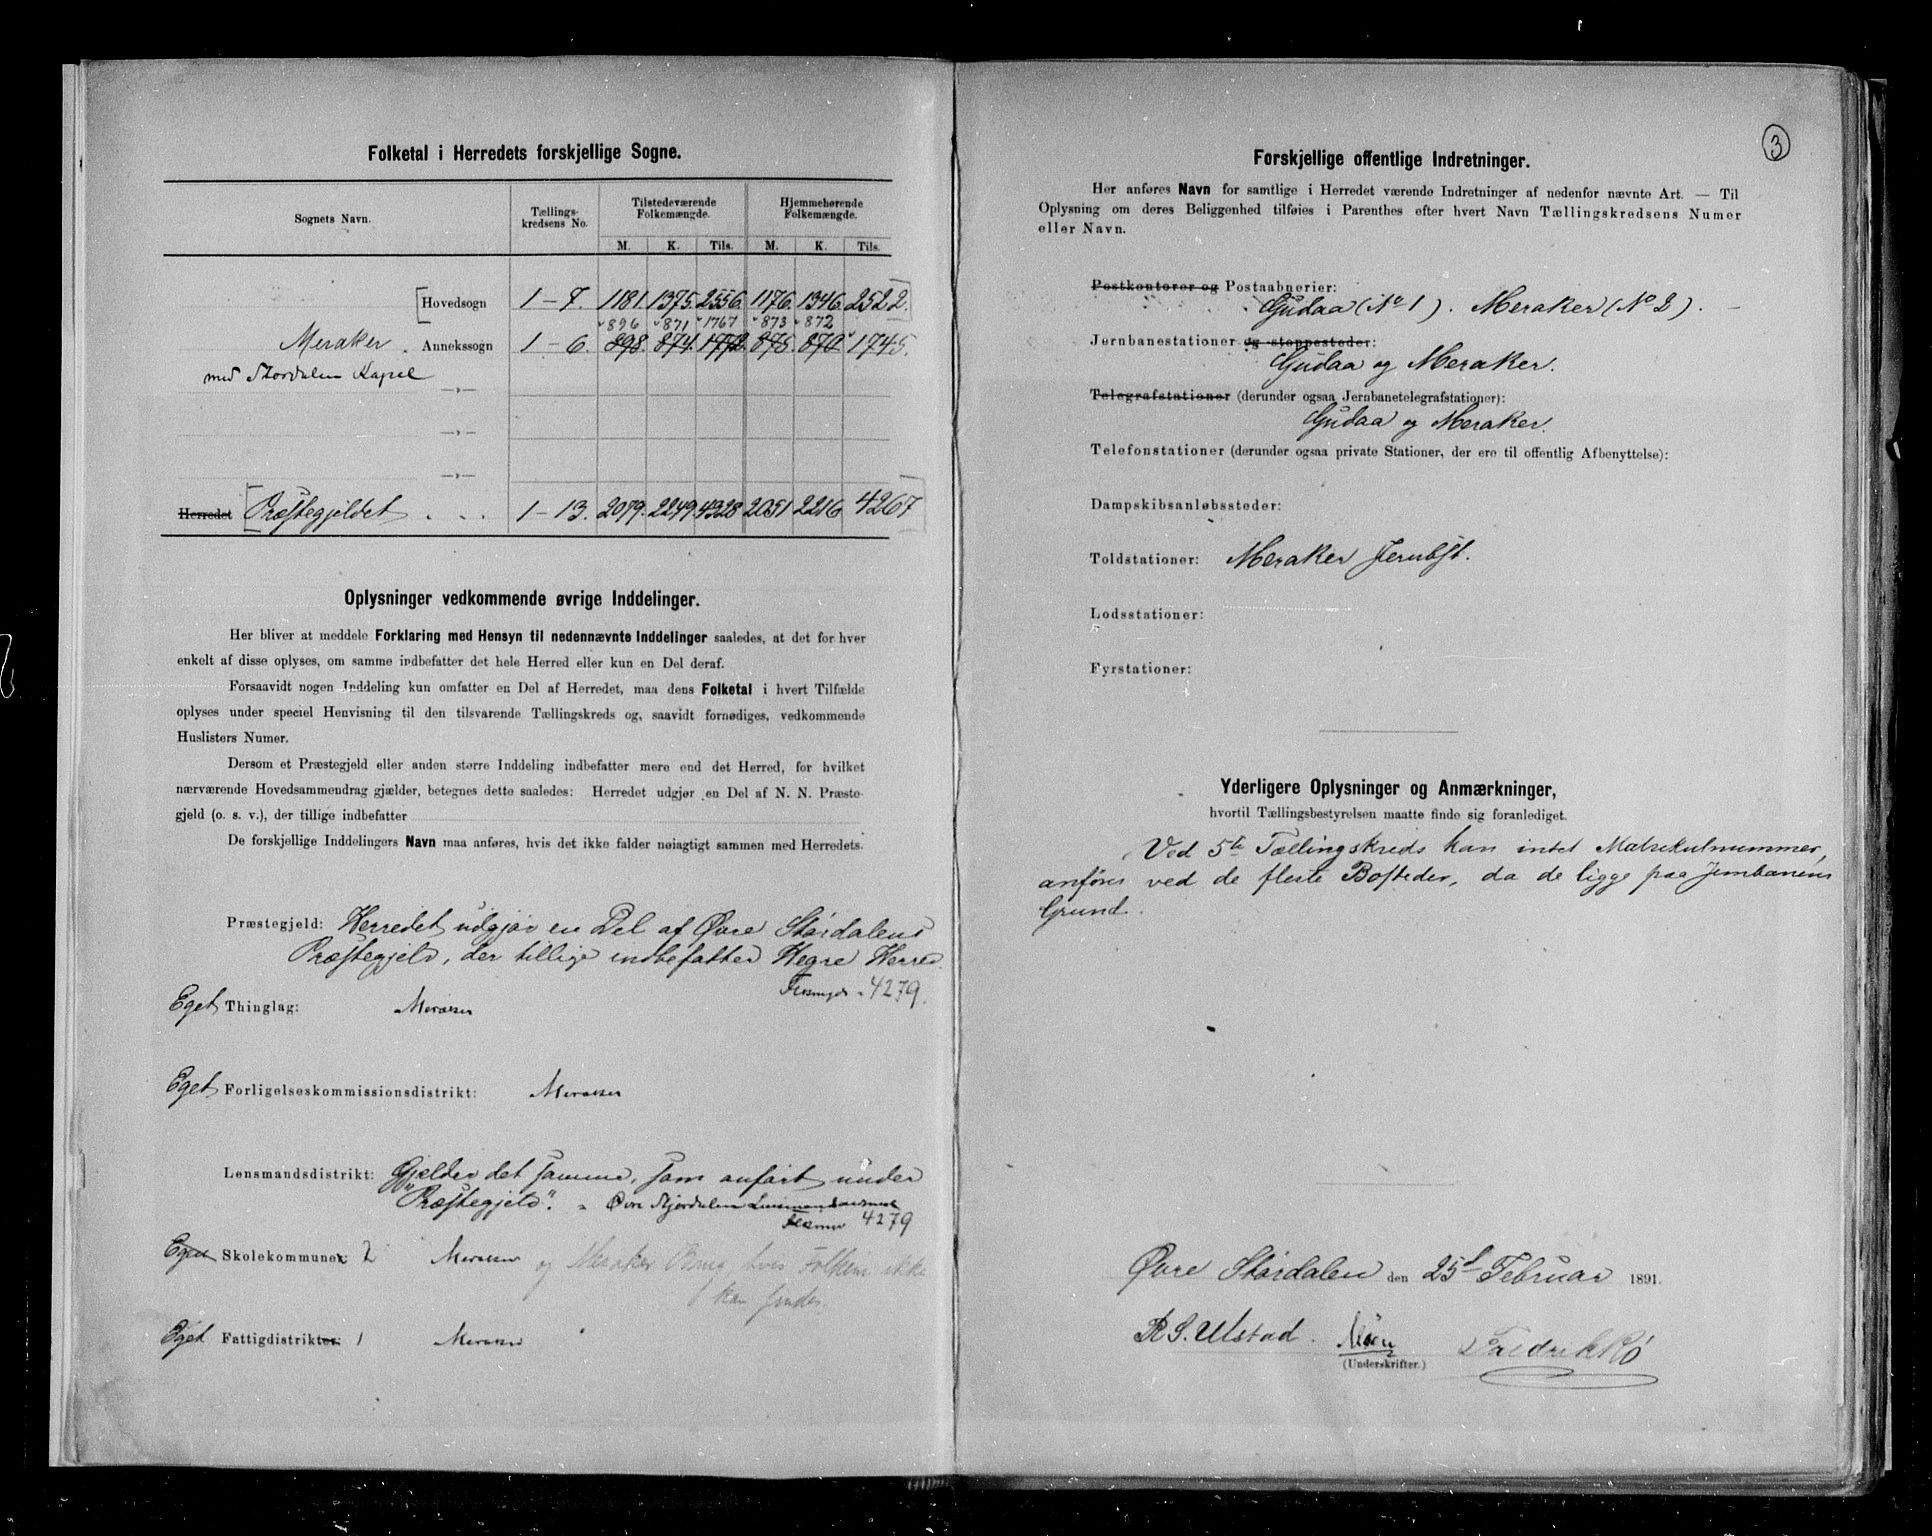 Folketal i Herredets forskjellige Sogne.
Sognets Navn. Tællings-kredsens No. Tilstedeværende Folkemængde. Hjemmehørende Folkemængde.
M. K. Tils. M. K. Tils.
Hovedsogn 1-7. 1181. 1375. 2556. 1176. 1346. 2522.
896 871 1767 873 872
Meraker. Annekssogn 1-6. 898. 874. 1772. 875. 870. 1745.
med Stordalen Kapel
—„—
—„—
—„—
Herredet Præstegjeldet . . . 1-13. 2079. 2249. 4328 2051 2216 4267
Oplysninger vedkommende øvrige Inddelinger.
Her bliver at meddele Forklaring med Hensyn til nedennævnte Inddelinger saaledes, at det for hver
enkelt af disse oplyses, om samme indbefatter det hele Herred eller kun en Del deraf.
Forsaavidt nogen Inddeling kun omfatter en Del af Herredet, maa dens Folketal i hvert Tilfælde
oplyses under speciel Henvisning til den tilsvarende Tællingskreds og, saavidt fornødiges, vedkommende
Huslisters Numer.
Dersom et Præstegjeld eller anden større Inddeling indbefatter mere end det Herred, for hvilket
nærværende Hovedsammendrag gjælder, betegnes dette saaledes: Herredet udgjør en Del af N. N. Præste-
gjeld (o. s. v.), der tillige indbefatter
De forskjellige Inddelingers Navn maa anføres, hvis det ikke falder nøiagtigt sammen med Herredets.
Præstegjeld: Herredet udgjør en Del af Øvre Størdalens
Præstegjeld, der tillige indbefatter Hegre Herred.
4279.
Eget Thinglag: Meraker
Eget Forligelseskommissionsdistrikt: Meraker
Lensmandsdistrikt: Gjelder det samme, som anført under
"Præstegjeld". Øvre Stjørdalen
4279
Eget Skolekommuner: 2 Meraker og Meraker Brug, hvis Folkem ikke
kan findes.
Eget Fattigdistrikter: 1 Meraker
3
Forskjellige offentlige Indretninger.
Her anføres Navn for samtlige i Herredet værende Indretninger af nedenfor nævnte Art. — Til
Oplysning om deres Beliggenhed tilføies i Parenthes efter hvert Navn Tællingskredsens Numer
eller Navn.
Postkontorer og Postaabnerier:
Gudaa (No 1). Meraker (No 2).
Jernbanestationer og stoppesteder:
Gudaa og Meraker.
Telegrafstationer (derunder ogsaa Jernbanetelegrafstationer):
Gudaa og Meraker.
Telefonstationer (derunder ogsaa private Stationer, der ere til offentlig Afbenyttelse):
Dampskibsanløbssteder:
Toldstationer: Meraker Jernbst.
Lodsstationer:
Fyrstationer:
Yderligere Oplysninger og Anmærkninger,
hvortil Tællingsbestyrelsen maatte finde sig foranlediget.
Ved 5te Tællingskreds kan intet Matrikulnummer,
anføres ved de fleste Bosteder, da de ligge paa Jernbanens
Grund.
Øvre Størdalen den 25d Februar 1891.
R S. Ulstad. Fredrik Rø
(Underskrifter.)